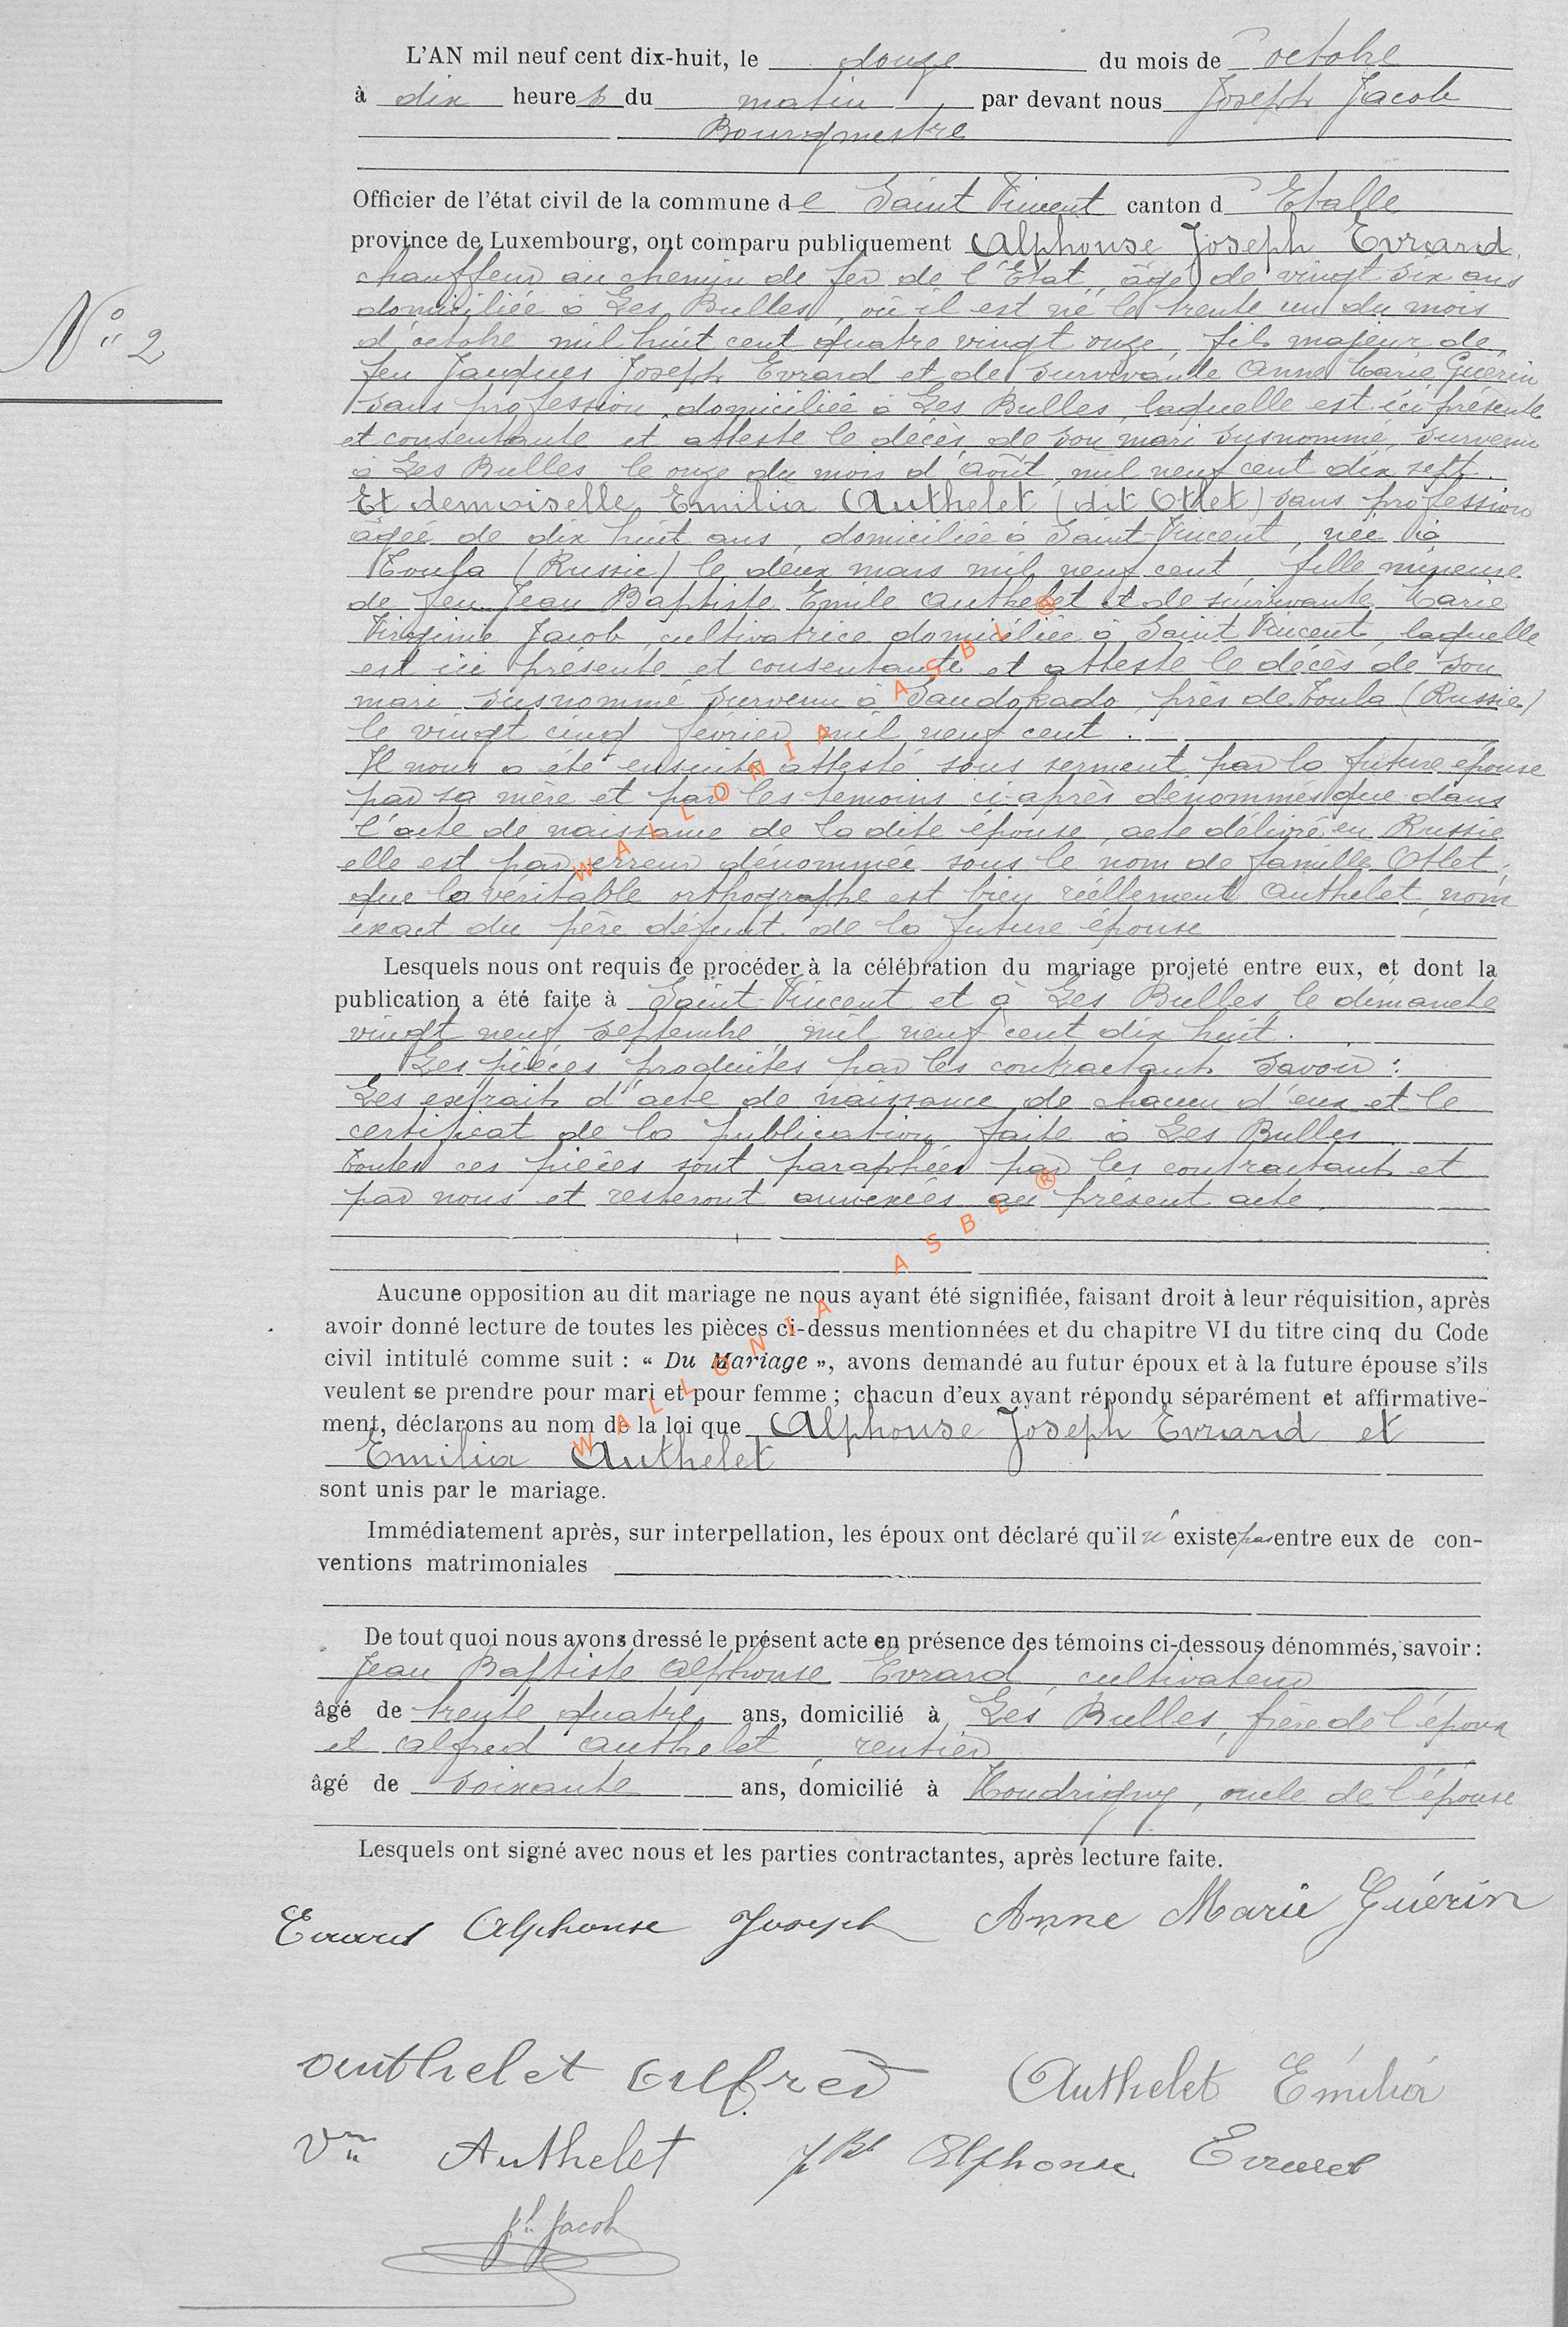 L'AN mil neuf cent dix-huit, le douze du mois de octobre
à dix heures du matin par devant nous Joseph Jacob
Bourgmestre
Officier de l'état civil de la commune de Saint Vincent canton d Etalle
province de Luxembourg, ont comparu publiquement Alphonse Joseph Evrard,
chauffeur au chemin de fer de l'Etat, âgé de vingt six ans
domiciliée à Les Bulles, où il est né le trente un du mois
d'octobre mil huit cent quatre vingt onze, fils majeur de
feu Jacques Joseph Evrard et de survivante Anne Marie Guérin
sans profession, domiciliée à Les Bulles, laquelle est ici présente
et consentante et atteste le décès de son mari susnommé, survenu
à Les Bulles le onze du mois d'Août mil neuf cent dix sept.
Et demoiselle Emilia Authelet (dit Otlet) sans profession
âgée de dix huit ans, domiciliée à Saint-Vincent, née à
Toula (Russie) le deux mars mil neuf cent, fille mineure
de feu Jean Baptiste Emile Authelet et de survivante Marie
Virginie Jacob, cultivatrice domiciliée à Saint Vincent, laquelle
est ici présente et consentante et atteste le décès de son
mari susnommé survenu à Soudokado, près de Toula (Russie)
le vingt cinq février mil neuf cent.
Il nous a été ensuite attesté sous serment par la future épouse
par sa mère et par les témoins ci-après dénommés que dans
l'acte de naissance de la dite épouse, acte délivré en Russie
elle est par erreur dénommée sous le nom de famille Otlet;
que la véritable orthographe est bien réellement Authelet, nom
exact du père défunt de la future épouse
Lesquels nous ont requis de procéder à la célébration du mariage projeté entre eux, et dont la
publication a été faite à Saint-Vincent et à Les Bulles le dimanche
vingt neuf septembre mil neuf cent dix huit.
Les pièces produites par les contractants savoir:
Les extraits d'acte de naissance de chacun d'eux et le
certificat de la publication faite à Les Bulles.
Toutes ces pièces sont paraphées par les contractants et
par nous et resteront annexées au présent acte.
Aucune opposition au dit mariage ne nous ayant été signifiée, faisant droit à leur réquisition, après
avoir donné lecture de toutes les pièces ci-dessus mentionnées et du chapitre VI du titre cinq du Code
civil intitulé comme suit : « Du Mariage », avons demandé au futur époux et à la future épouse s'ils
veulent se prendre pour mari et pour femme ; chacun d'eux ayant répondu séparément et affirmative-
ment, déclarons au nom de la loi que Alphonse Joseph Evrard et
Emilia Authelet
sont unis par le mariage.
Immédiatement après, sur interpellation, les époux ont déclaré qu'il n'existe pas entre eux de con-
ventions matrimoniales
De tout quoi nous avons dressé le présent acte en présence des témoins ci-dessous dénommés, savoir :
Jean Baptiste Alphonse Evrard, cultivateur
âgé de trente quatre ans, domicilié à Les Bulles, frère de l'époux
et Alfred Authelet, rentier
âgé de soixante ans, domicilié à Houdrigny, oncle de l'épouse
Lesquels ont signé avec nous et les parties contractantes, après lecture faite.
Evrard Alphonse Joseph Anne Marie Guérin
Authelet Alfred Authelet Emilia
Vve Authelet J Bte Alphonse Evrard
Jh Jacob
N° 2
WALLONIA ASBL ®
WALLONIA ASBL ®